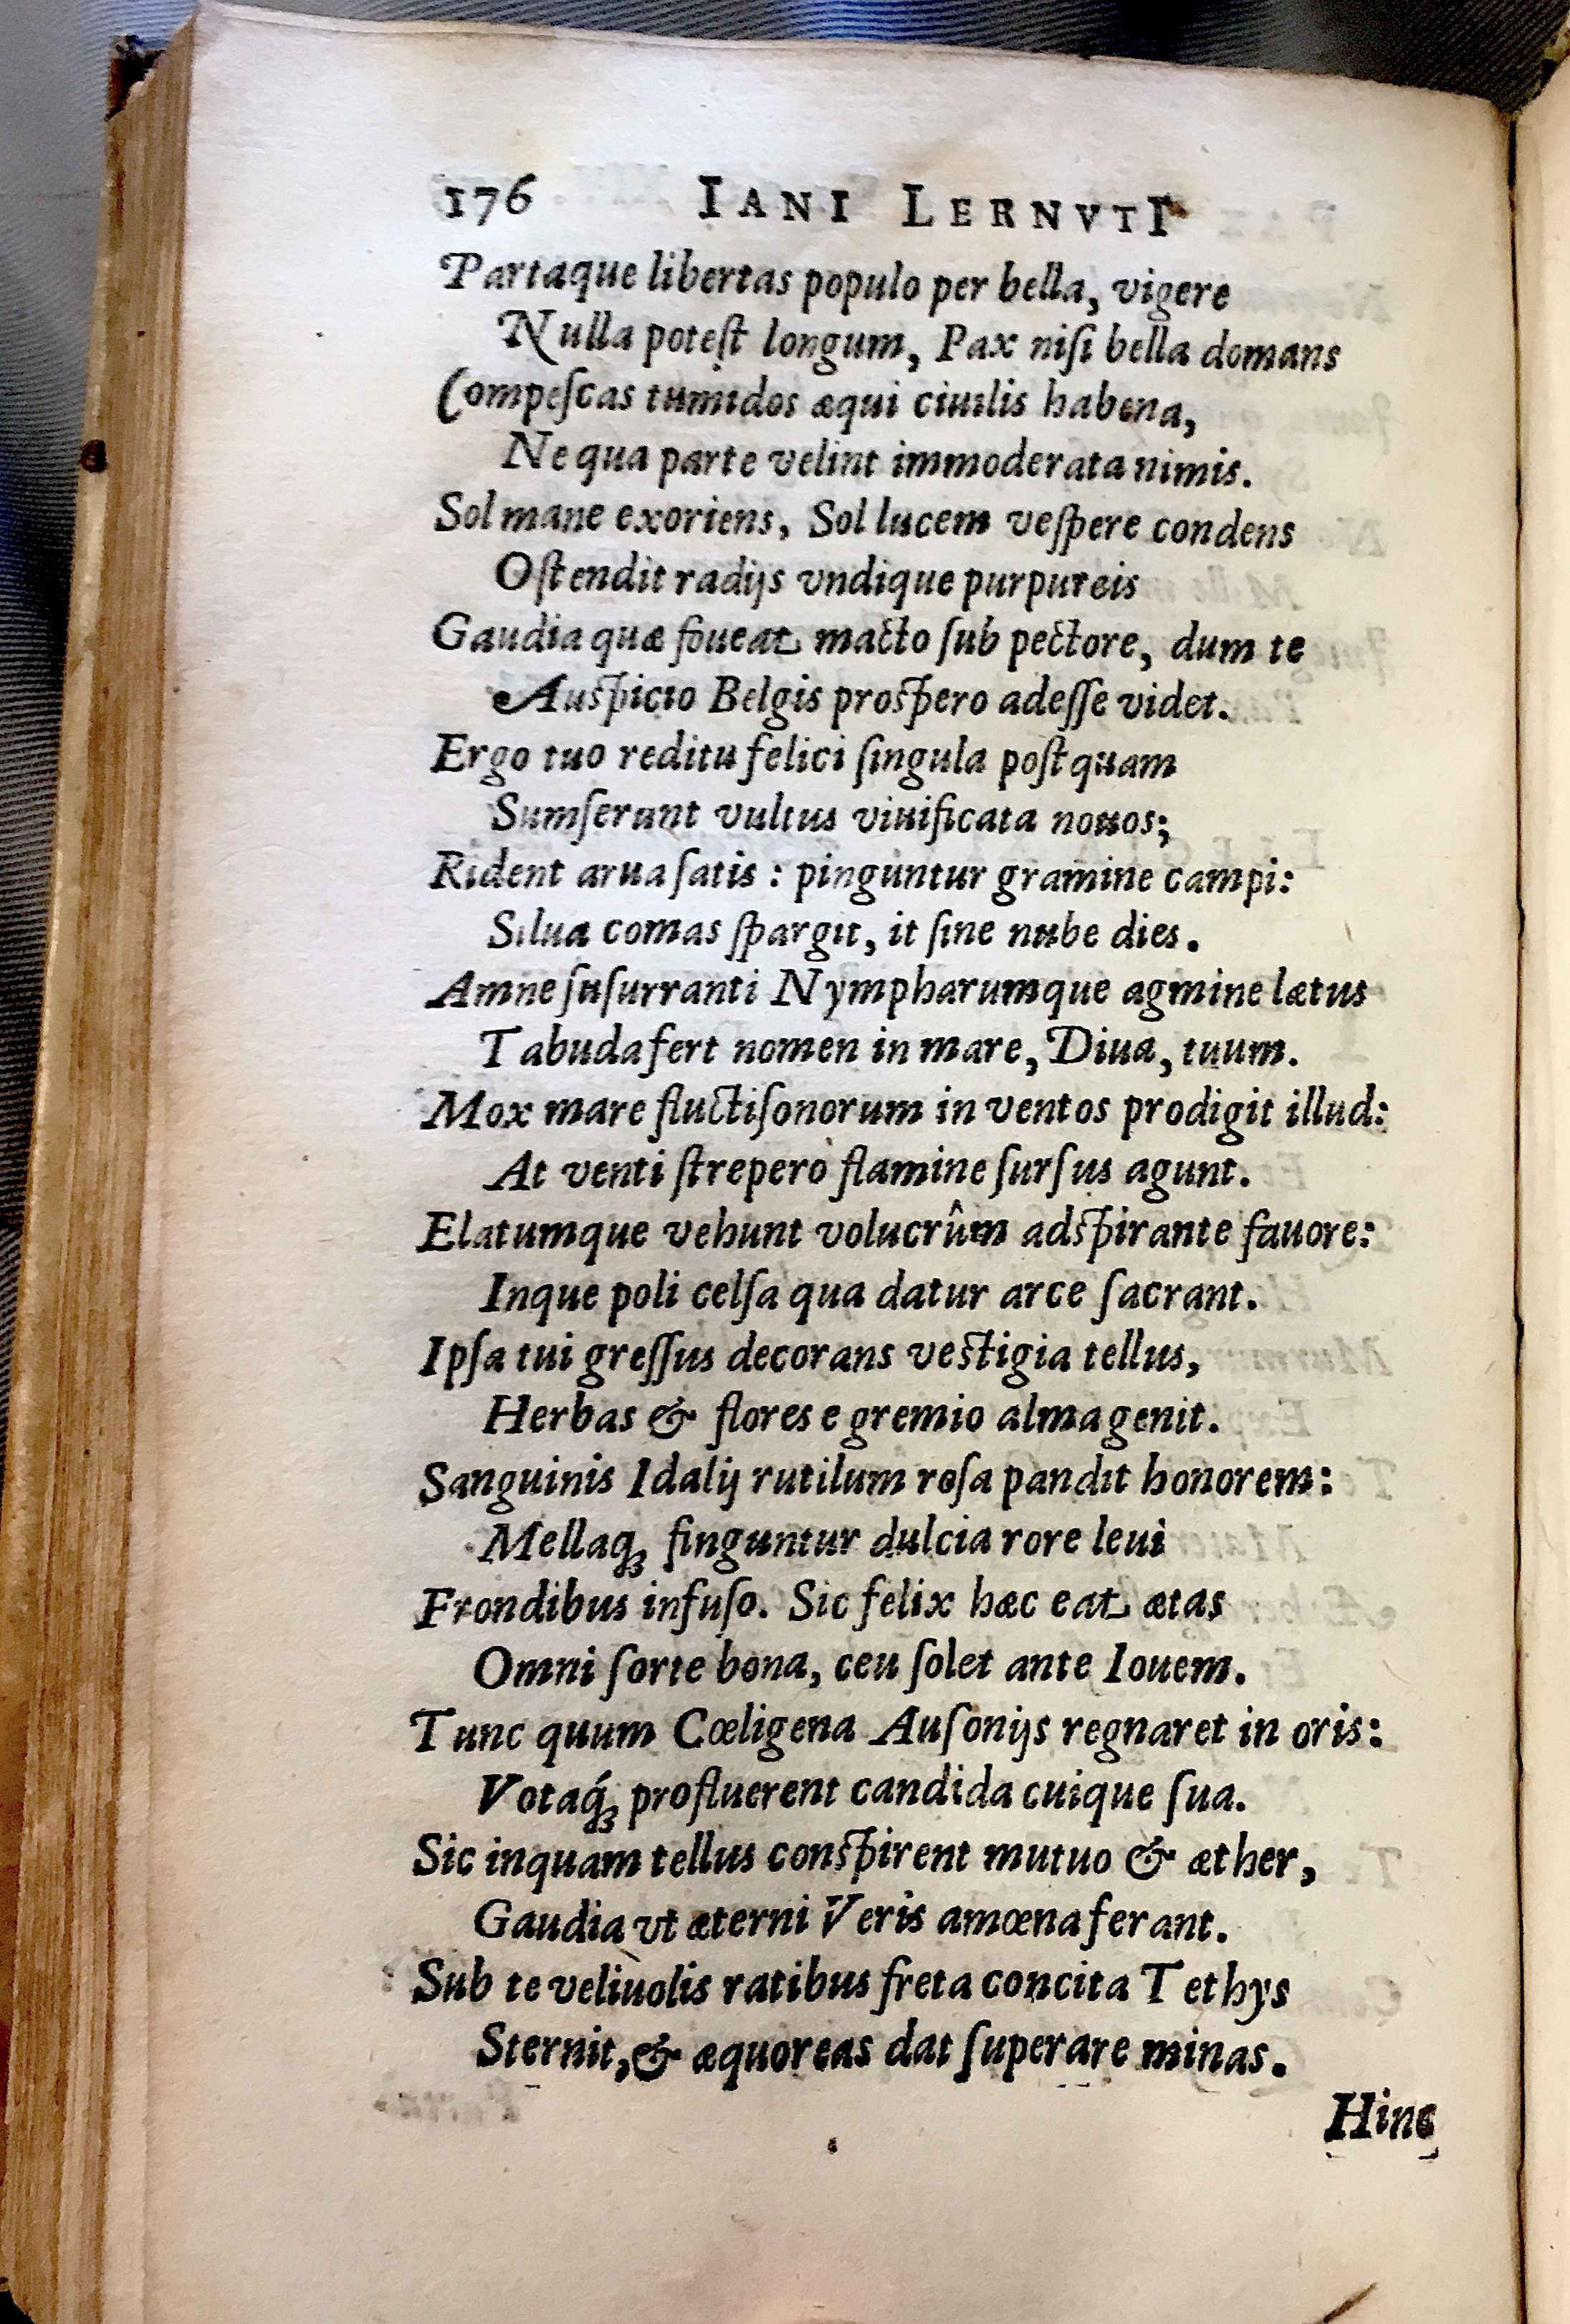 176 IANI LERNVTI
Partaque libertas populo per bella, vigere
Nulla poteſt longum, Pax niſi bella domans
Compeſcas tumidos æqui ciuilis habena,
Ne qua parte velint immoderata nimis.
Sol mane exoriens, Sol lucem veſpere condens
Oſtendit radijs vndique purpureis
Gaudia quæ foueat macto ſub pectore, dum te
Auſpicio Belgis proſpero adeſſe videt.
Ergo tuo reditu felici ſingula poſtquam
Sumſerunt vultus viuificata nouos;
Rident arua ſatis : pinguntur gramine campi:
Silua comas ſpargit, it ſine nube dies.
Amne ſuſurranti Nympharumque agmine lætus
Tabuda fert nomen in mare, Diua, tuum.
Mox mare fluctiſonorum in ventos prodigit illud:
At venti ſtrepero flamine ſurſus agunt.
Elatumque vehunt volucrûm adſpirante fauore:
Inque poli celſa qua datur arce ſacrant.
Ipſa tui greſſus decorans veſtigia tellus,
Herbas & flores e gremio alma genit.
Sanguinis Idalij rutilum roſa pandit honorem:
Mellaqꝫ finguntur dulcia rore leui
Frondibus infuſo. Sic felix hæc eat ætas
Omni ſorte bona, ceu ſolet ante Iouem.
Tunc quum Cœligena Auſonijs regnaret in oris:
Votaq́ꝫ profluerent candida cuique ſua.
Sic inquam tellus conſpirent mutuo & æther,
Gaudia vt æterni Veris amœna ferant.
Sub te veliuolis ratibus freta concita Tethys
Sternit, & æquoreas dat ſuperare minas.
Hinc